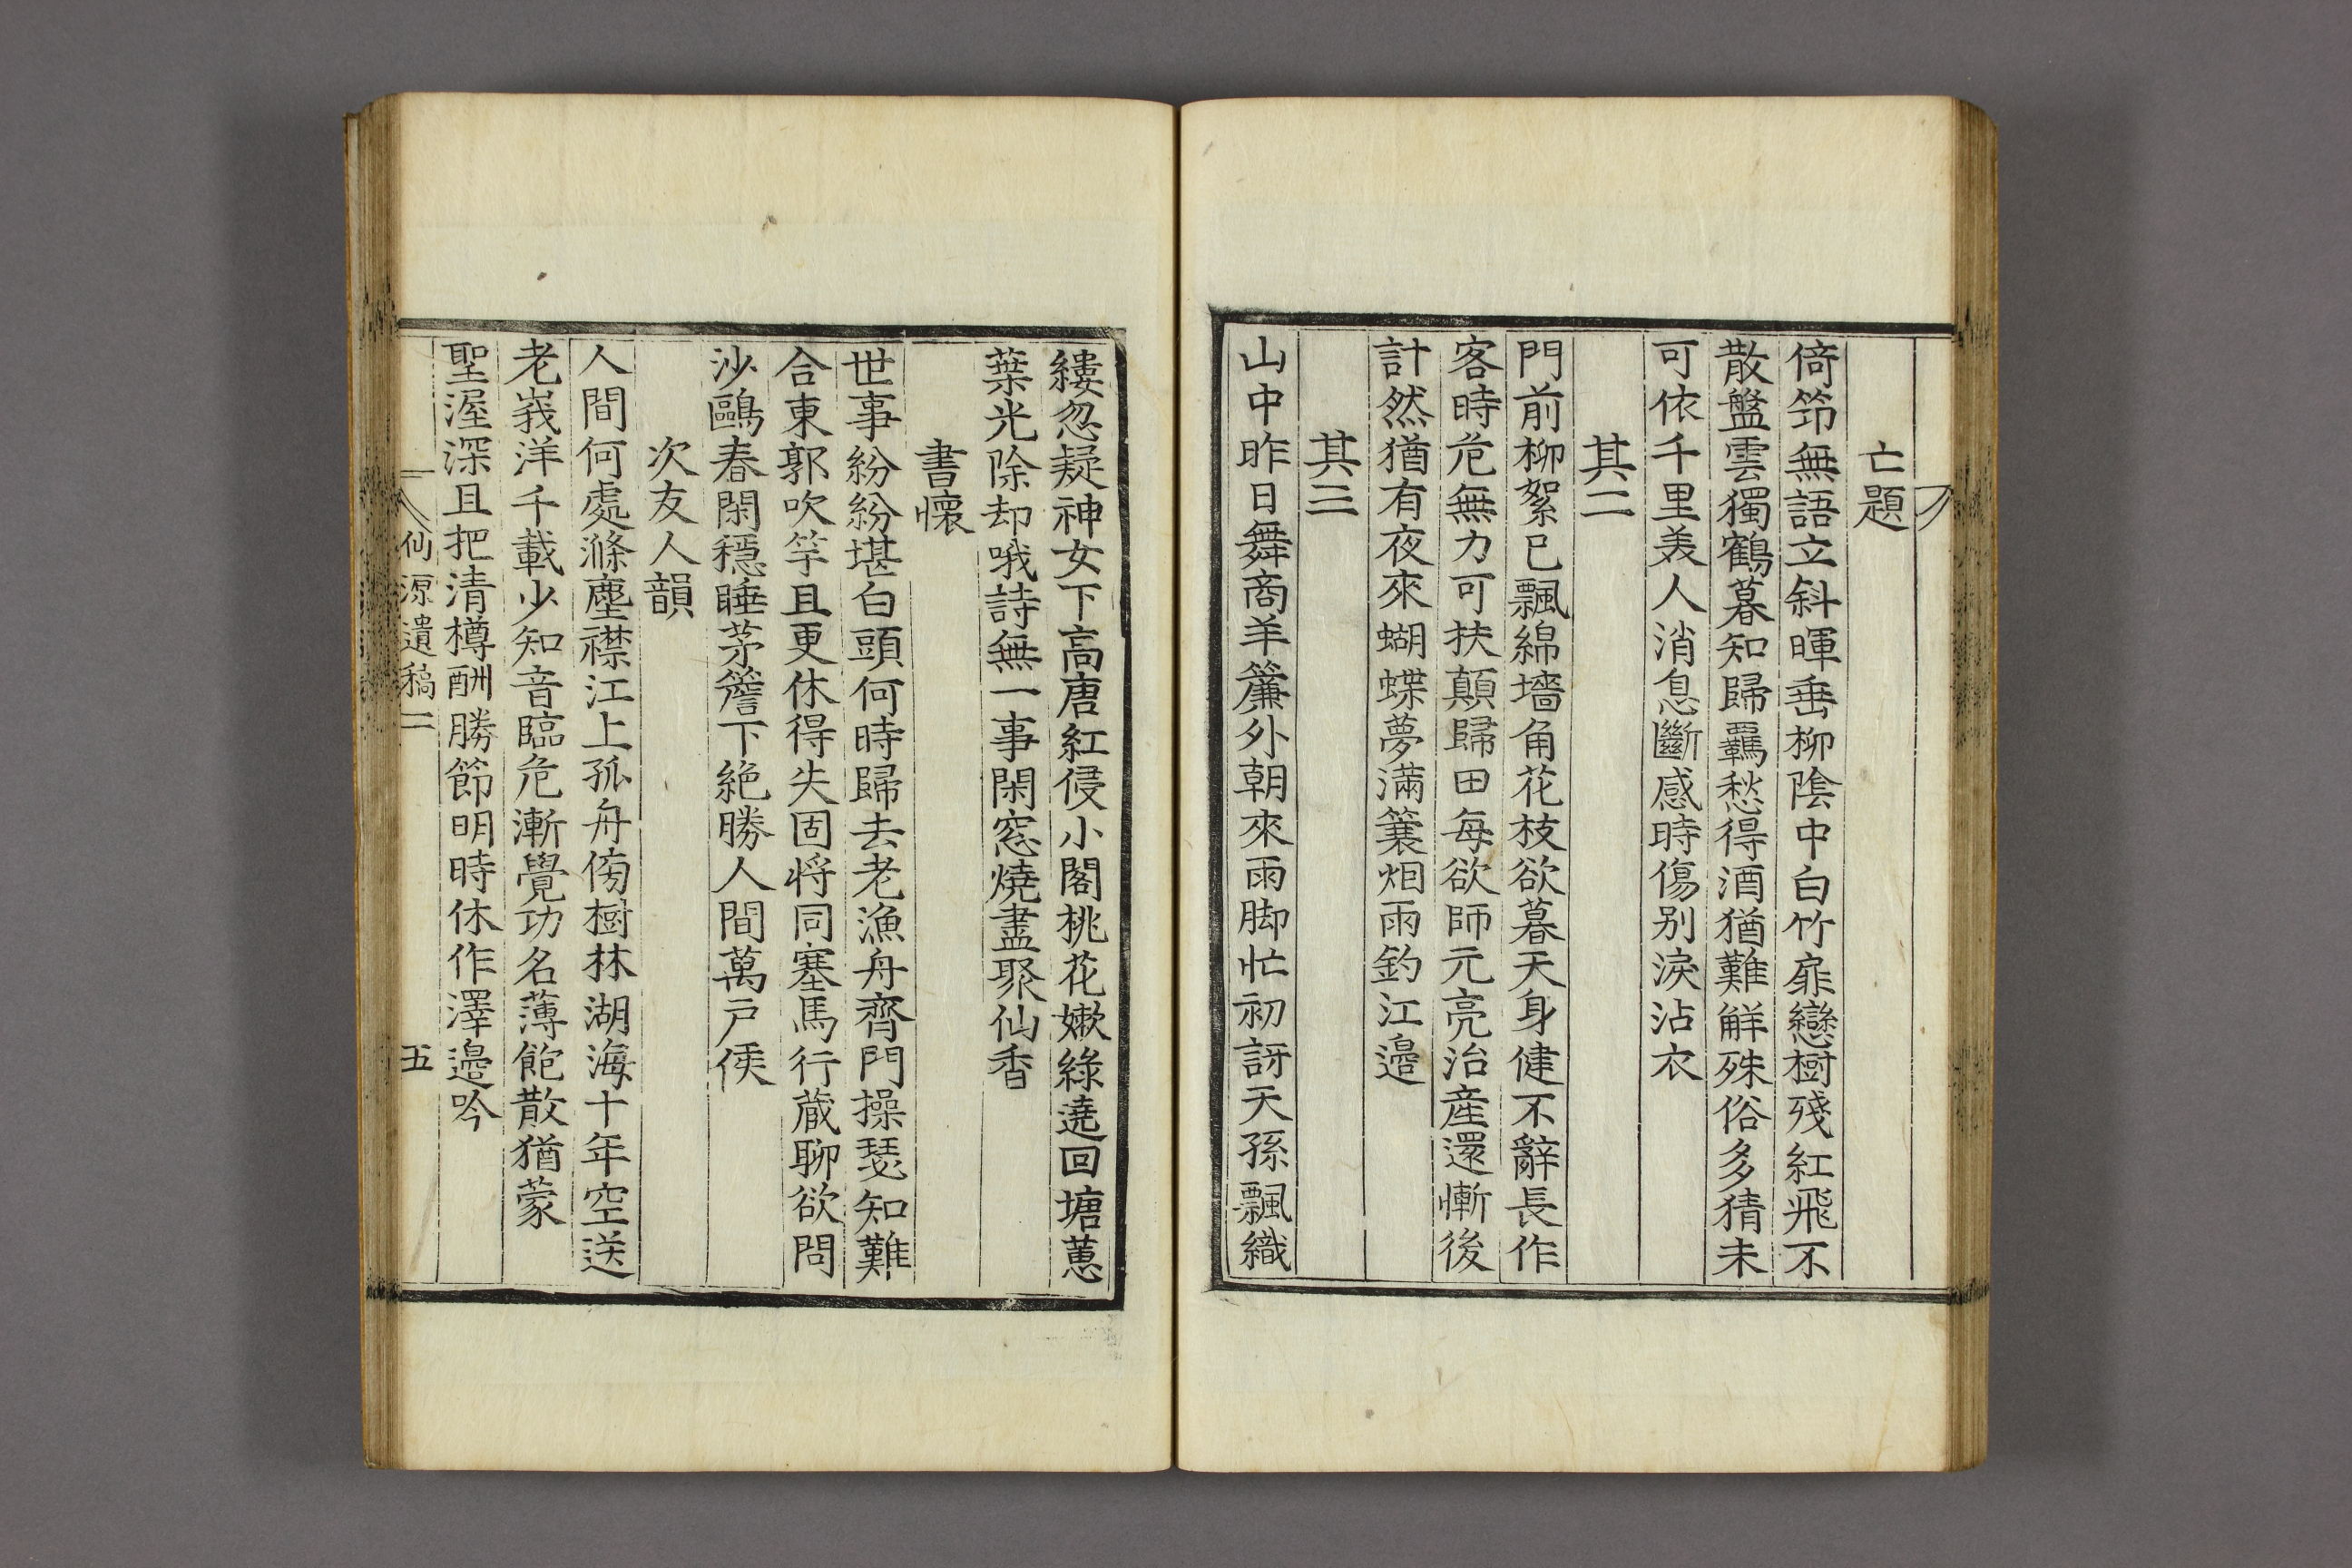 亡題
倚笻無語立斜暉垂柳陰中白竹扉戀樹殘紅飛不
散盤雲獨鶴暮知歸羈愁得酒猶難觧殊俗多猜未
可依千里美人消息斷感時傷別淚沾衣
其二
門前柳絮已飄綿墻角花枝欲暮天身健不辭長作
客時危無力可扶顛歸田每欲師元亮治産還慚後
計然猶有夜來蝴蝶夢滿簑烟雨釣江邉
其三
山中昨日舞商羊簾外朝來雨脚忙初訝天孫飄織
縷忽疑神女下高唐紅侵小閣桃花嫩綠遶回塘蕙
葉光除却哦詩無一事閑窓燒盡聚仙香
書懷
世事紛紛堪白頭何時歸去老漁舟齊門操瑟知難
合東郭吹竽且更休得失固將同塞馬行蔵聊欲問
沙鷗春閑穩睡茅簷下絶勝人間萬戶侯
次友人韻
人間何處滌塵襟江上孤舟傍樹林湖海十年空送
老峩洋千載少知音臨危漸覺功名薄飽散猶蒙
聖渥深且把清樽酬勝節明時休作澤邉吟
仙源遺稿二 五